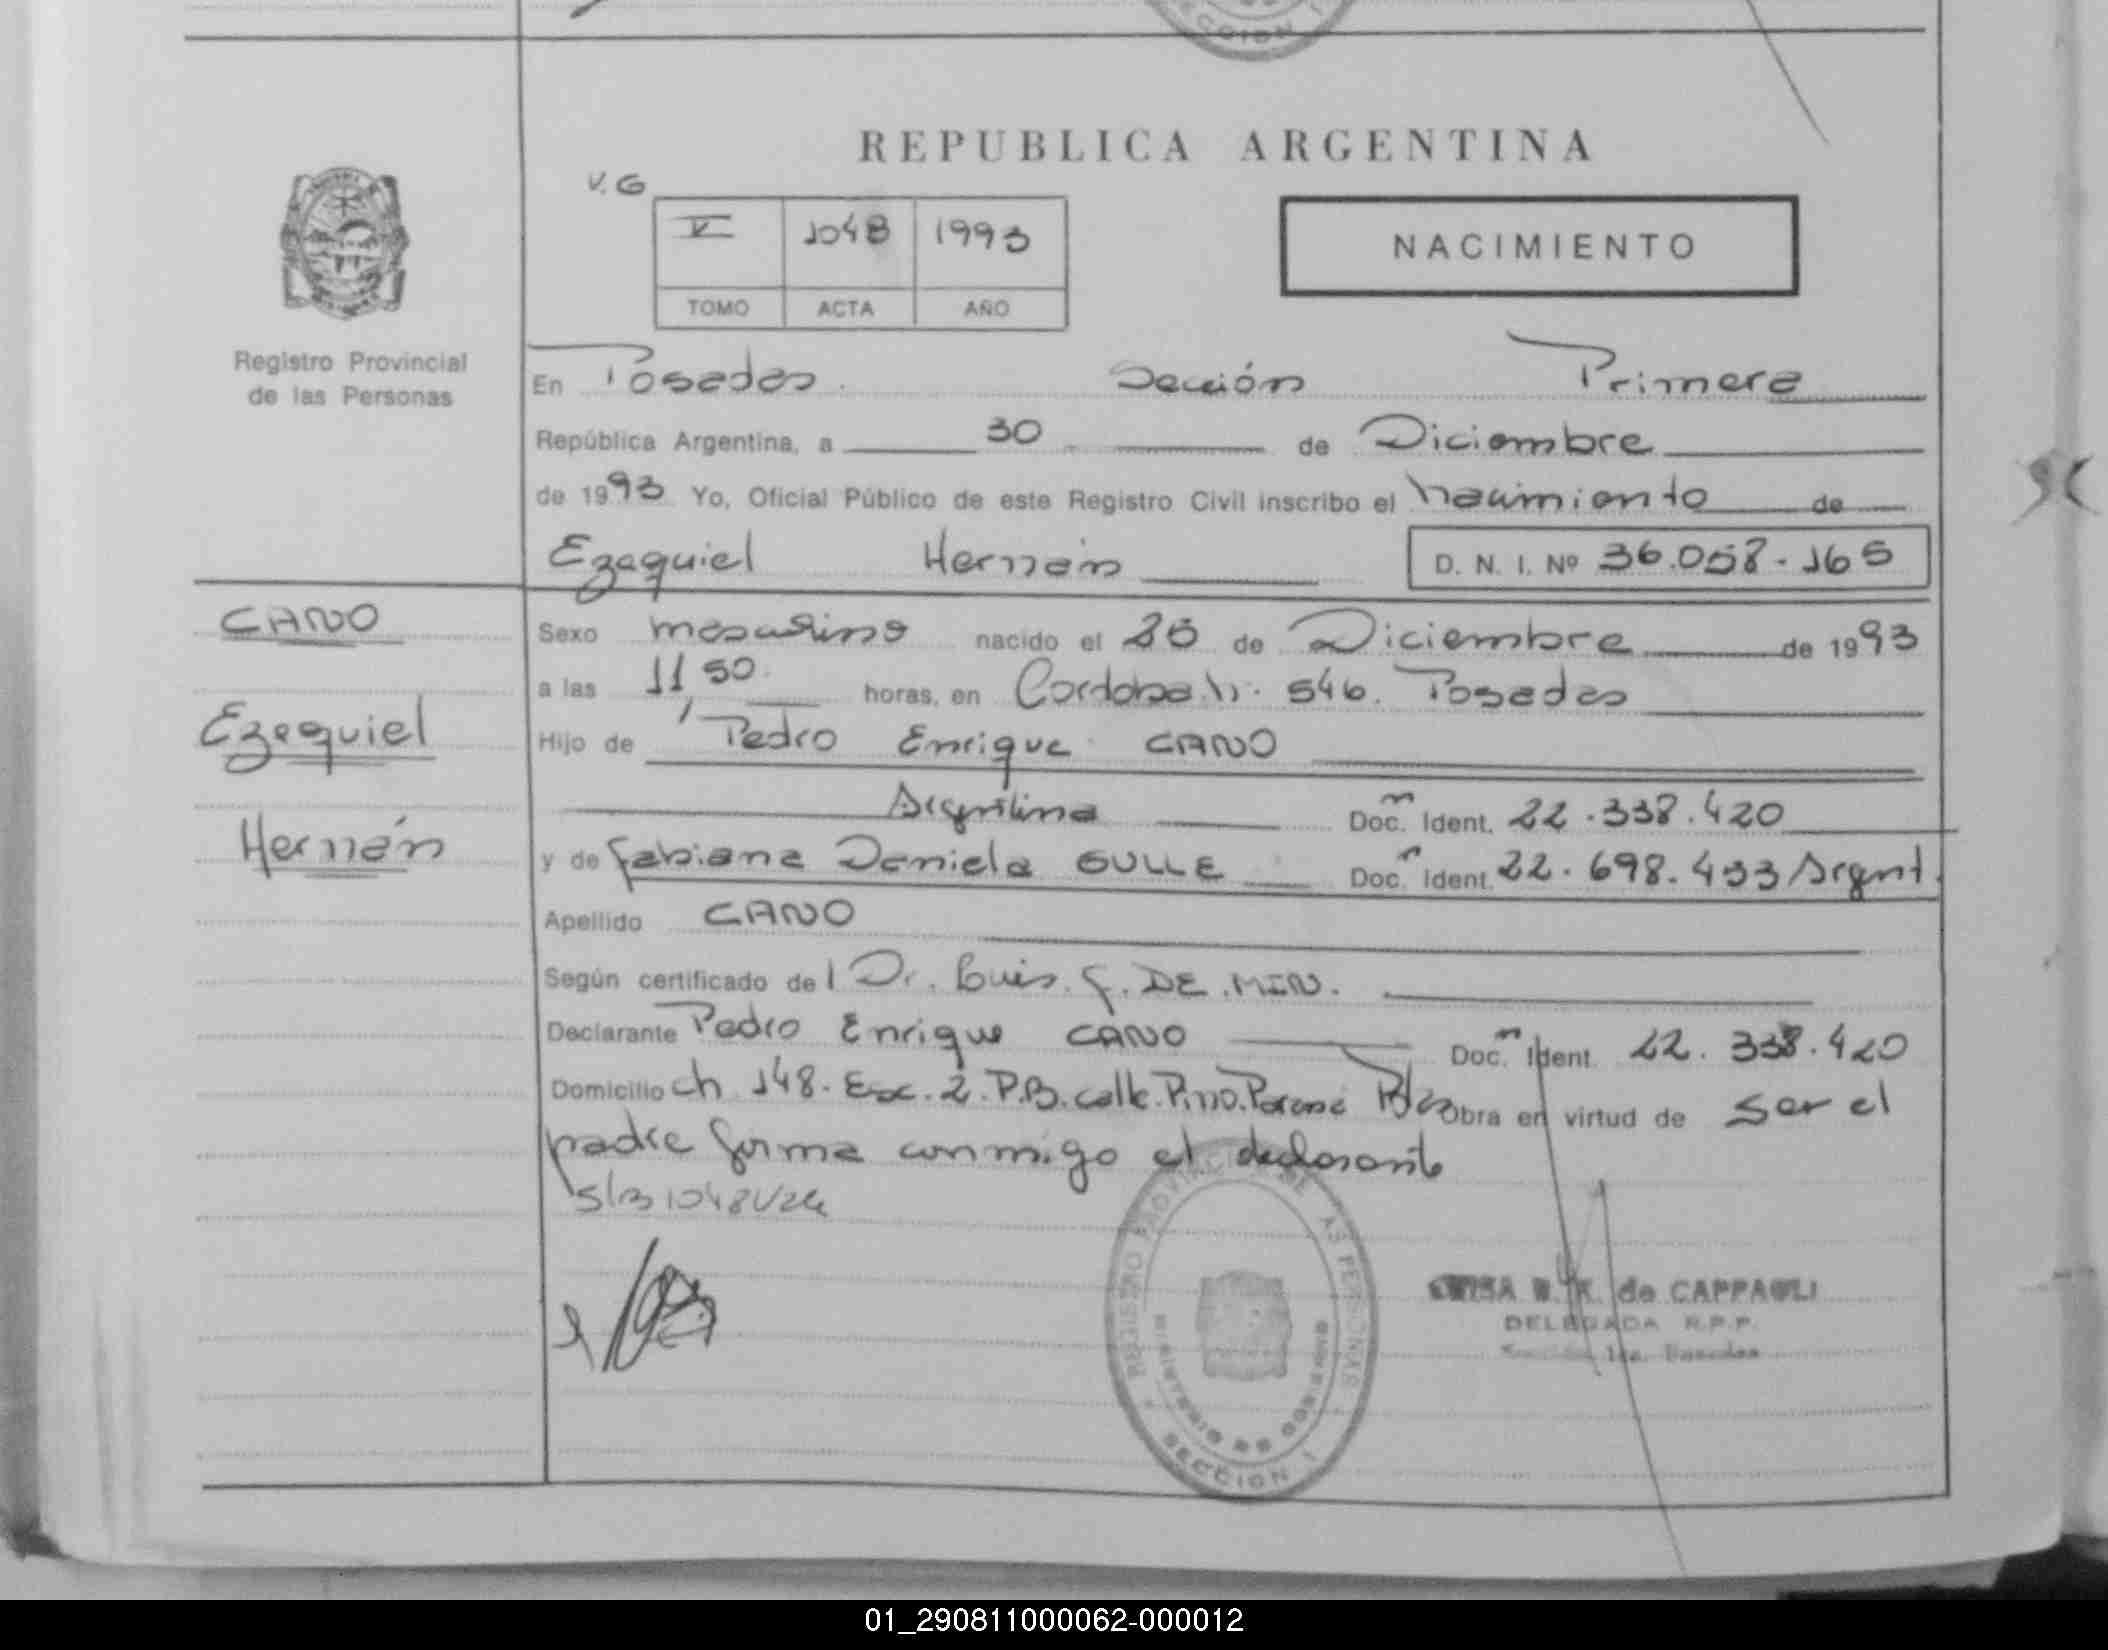 REPUBLICA ARGENTINA
V.G
V 1048 1993
TOMO ACTA AÑO
NACIMIENTO
Registro Provincial
de las Personas
En Posadas Sección Primera
República Argentina, a 30 de Diciembre
de 1993 Yo, Oficial Público de este Registro Civil inscribo el nacimiento de
Ezequiel Hernán D. N. I. Nº 36.058.165
CANO
Ezequiel
Hernán
Sexo masculino nacido el 26 de Diciembre de 1993
a las 11,50 horas, en Cordoba N. 546. Posadas
Hijo de Pedro Enrique CANO
Argentina Doc. Ident. 22.338.420
y de Fabiana Daniela GULLE Doc. Ident. 22.698.433 Argent.
Apellido CANO
Según certificado del Dr. Luis F. DE MIN.
Declarante Pedro Enrique CANO Doc. Ident. 22.338.420
Domicilio Ch 148. Esc. 2. P.B. calle. Pno. Paraná Pdas Obra en virtud de ser el
padre firma conmigo el declarante
REGISTRO PROVINCIAL DE LAS PERSONAS
MINISTERIO DE GOBIERNO
SECCION I
de CAPPAOLI
DELEGADA R.P.P.
1ra. Posadas
01_290811000062-000012